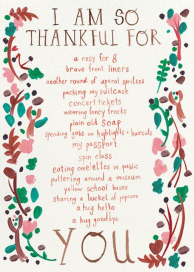 I AM SO
THANKFUL FOR
a resy for 8
brave front liners
another round of aperol spritzes
packing my suitcase
concert tickets
wearing fancy frocks
plain old SOAP
spending jobs on highlights + haircuts
my passport
spin class
eating omelettes in music
puttering around a museum
yellow school buses
sharing a bucket of popcorn
a hug hello
a hug goodbye
YOU